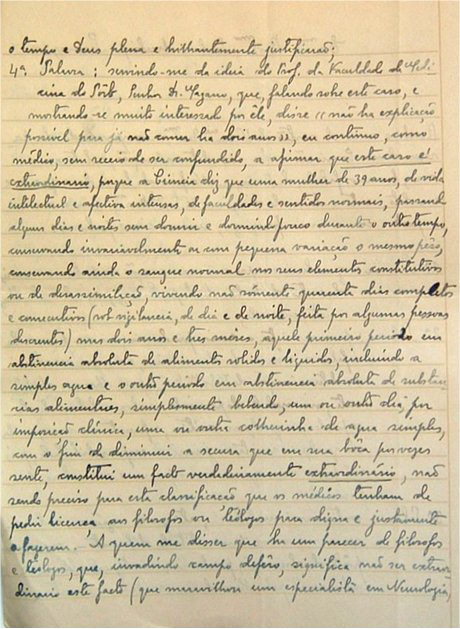 o tempo e Deus plena e brilhantemente justificarão;
4ª. Palavra: servindo-me da ideia do Prof. da Faculdade de Medi
cina do Pôrto, Senhor Dr. que, falando sobre este caso, e
mostrando-se muito interessado por êle, disse «não ha explicação
possivel para já não comer ha dois anos», eu continuo, como
médico, sem receio de ser confundido, a afirmar que este caso é
extraordinario, porque a Ciencia diz que uma mulher de 39 anos, de vida
intelectual e afectiva intensas, de faculdades e sentidos normais, passando
alguns dias e noites sem dormir e dormindo pouco durante o outro tempo,
conservando invariavelmente ou com pequena variação o mesmo pêso,
conservando ainda o sangue normal nos seus elementos constitutivos
ou de desassimilação, vivendo não sòmente quarenta dias completos
e consecutivos (sob vigilancia, de dia e de noite, feita por algumas pessoas
descrentes) mas dois anos e tres mêses, aquele primeiro periodo em
abstinencia absoluta de alimentos solidos e liquidos, incluindo a
simples agua e o outro periodo em abstinencia absoluta de substan
cias alimentares, simplesmente bebendo, um ou outro dia, por
imposição clinica, uma ou outra colherinha de agua simples,
com o fim de diminuir a secura que em sua bôca por vezes
sente, constitui um facto verdadeiramente extraordinário, não
sendo preciso para esta classificação que os médicos tenham de
pedir licença aos filosofos ou teólogos para digna e justamente
a fazerem. A quem me disser que ha um parecer de filosofos
e teólogos, que, invadindo campo defêso, significa não ser extraor
dinario este facto (que maravilhou um especialista em Neurologia,